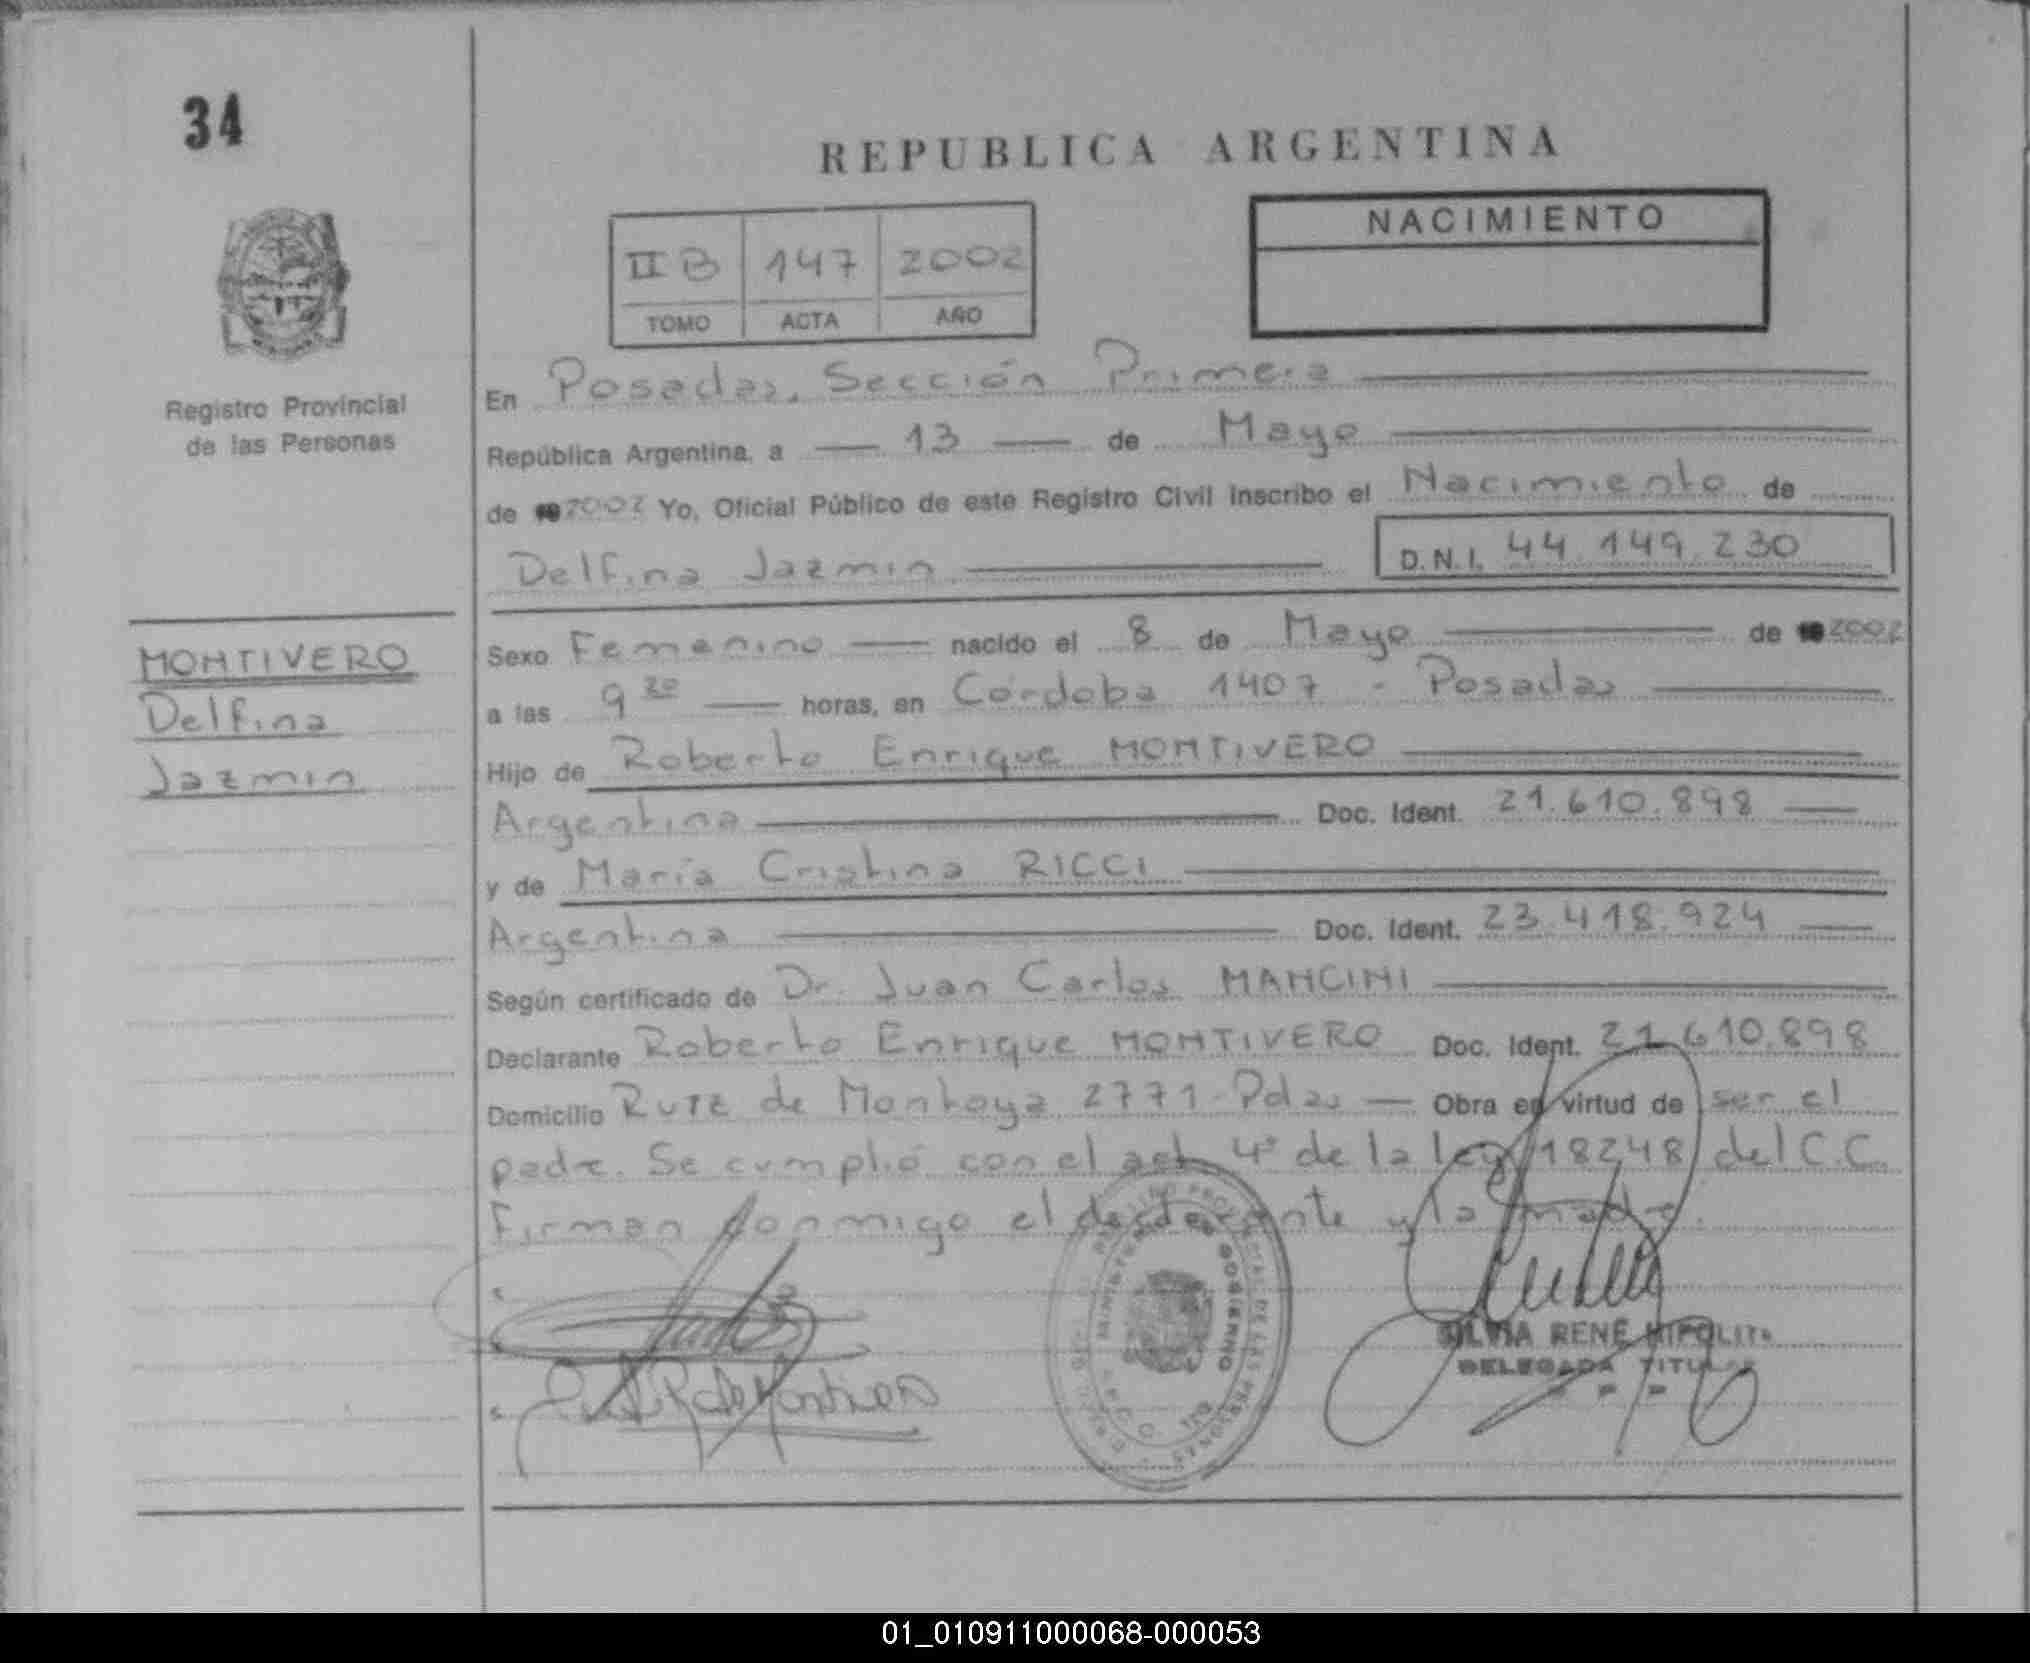 34
REPUBLICA ARGENTINA
II B 147 2002
TOMO ACTA AÑO
NACIMIENTO
Registro Provincial
de las Personas
En Posadas, Sección Primera
República Argentina, a 13 de Mayo
de 2002 Yo, Oficial Público de este Registro Civil inscribo el Nacimiento de
Delfina Jazmin D.N.I. 44.149.230
MONTIVERO
Delfina
Jazmin
Sexo Femenino nacido el 8 de Mayo de 2002
a las 9 horas, en Córdoba 1407 - Posadas
Hijo de Roberto Enrique MONTIVERO
Argentina Doc. Ident. 21.610.898
y de María Cristina RICCI
Argentina Doc. Ident. 23.418.924
Según certificado de Dr. Juan Carlos MANCINI
Declarante Roberto Enrique MONTIVERO Doc. Ident. 21.610.898
Domicilio Ruiz de Montoya 2771-Pdas Obra en virtud de ser el
padre. Se cumplió con el art 4° de la ley 18248 del C.C.
Firman conmigo el declarante y la madre.
SILVIA RENÉ HIPOLITO
DELEGADA TITULAR
01_010911000068-000053